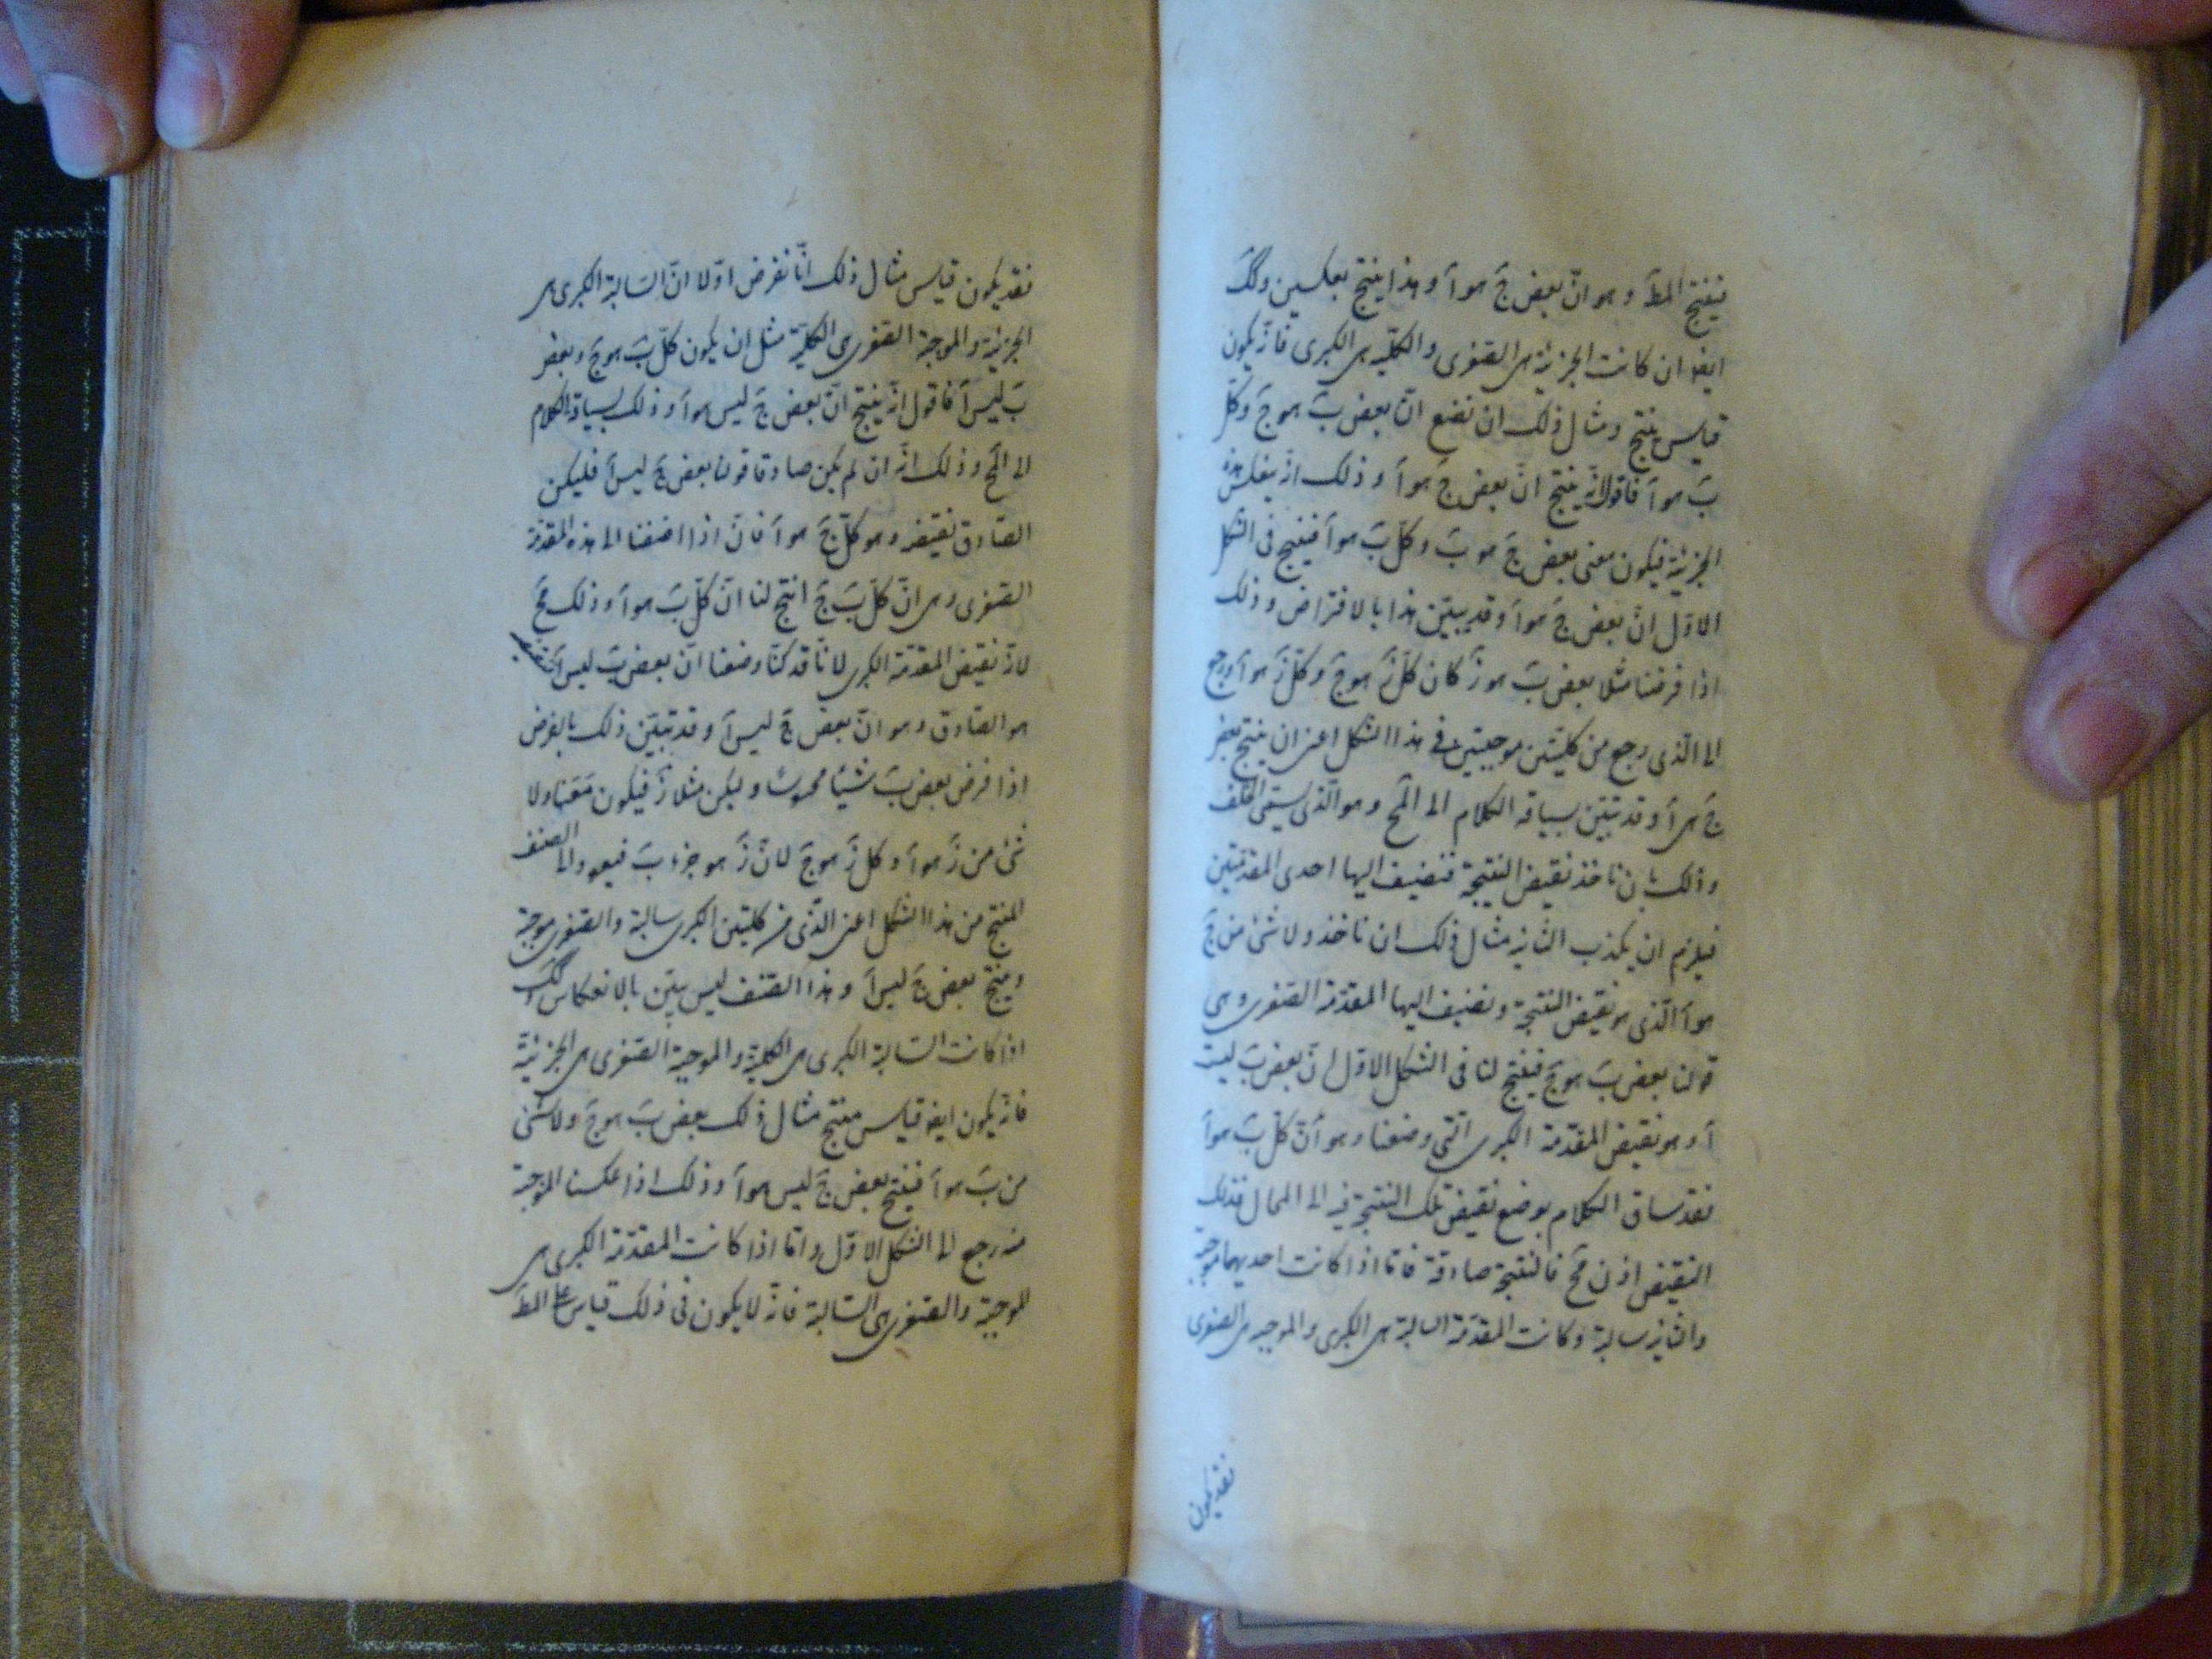 فينتج المط وهو ان بعض جَ هو آ وهذا ينتج بعكسين وكك
ايضا ان كانت الجزئية هى الصغرى والكلية هى الكبرى فانه يكون
قياس ينتج ومثال ذلك ان نضع ان بعض بَ هو جَ وكل
بَ هو آ فاقول انه ينتج ان بعض جَ هو آ وذلك انه ينعكس هذه
الجزئية فيكون معنى بعض جَ هو بَ وكل بَ هو آ فينتج فى الشكل
الاول ان بعض جَ هو آ وقد يبيّن هذا بالافتراض وذلك
اذا فرضنا مثلا بعض بَ هو زَ كان كل زَ هو جَ وكل زَ هو آ ورجع
الى الذى رجع من كليتين موجبتين فى هذا الشكل اعنى ان ينتج بعض
جَ هى آ وقد تبيّن بسياقه الكلام الى المح وهو الذى يسمى الخلف
وذلك بان ناخذ نقيض النتيجة فنضيف اليها احدى المقدمتين
فيلزم ان يكذب الثانية مثال ذلك ان ناخذ ولا شئ من جَ
هو آ الذى هو نقيض النتيجة ونضيف اليها المقدمة الصغرى وهى
قولنا بعض بَ هو جَ فينتج لنا فى الشكل الاول ان بعض بَ ليس
آ وهو نقيض المقدمة الكبرى التى وضعنا وهو ان كل بَ هو آ
فقد ساق الكلام بوضع نقيض تلك النتيجة فيه الى المحال فذلك
النقيض اذن مح فالنتيجة صادقة فاما اذا كانت احديهما موجبة
والثانية سالبة وكانت المقدمة السالبة هى الكبرى والموجبه هى الصغرى
فقد يكون
فقد يكون قياس مثال ذلك انا نفرض اولا ان السالبة الكبرى هى
الجزئية والموجبة الصغرى الكلية مثل ان يكون كل بَ هو جَ وبعض
بَ ليس آ فاقول انه ينتج ان بعض جَ ليس هو آ وذلك بسياقة الكلام
الى المح وذلك انه ان لم يكن صادقا قولنا بعض جَ ليس آ فليكن
الصادق نقيضه وهو كل جَ هو آ فانه اذا اضفنا الى هذه المقدمة
الصغرى وهى ان كل بَ جَ انتج لنا ان كل بَ هو آ وذلك مح
لانه نقيض المقدمة الكبرى لانا قد كنا وضعنا ان بعض بَ ليس آ
هو الصادق وهو ان بعض جَ ليس آ وقد تبيّن ذلك بالفرض
اذا فرض بعض بَ شيئا محسوسا وليكن مثلا زَ فيكون معنا ولا
شئ من زَ هو آ وكل زَ هو جَ لان زَ هو جزء بَ فيعود الى الصنف
المنتج من هذا الشكل اعنى الذى من كليتين الكبرى سالبة والصغرى موجبة
وينتج بعض جَ ليس آ وهذا الصنف ليس يبيّن بالانعكاس وكك
اذا كانت السالبة الكبرى هى الكلية والموجبة الصغرى هى الجزئية
فانه يكون ايضا قياس منتج مثال ذلك بعض بَ هو جَ ولا شئ
من بَ هو آ فينتج بعض جَ ليس هو آ وذلك اذا عكسنا الموجبة
منه رجع الى الشكل الاول واما اذا كانت المقدمة الكبرى هى
الموجبة والصغرى هى السالبة فانه لا يكون فى ذلك قياس على المط